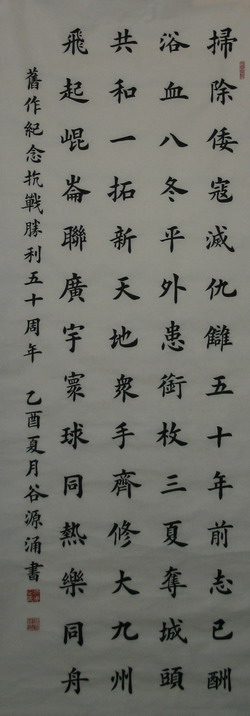 掃除倭寇滅仇讎五十年前志已酬
浴血八冬平外患銜枚三夏奪城頭
共和一拓新天地眾手齊修大九州
飛起崐崙聯廣宇寰球同熱樂同舟
舊作紀念抗戰勝利五十周年 乙酉夏月谷源涌書